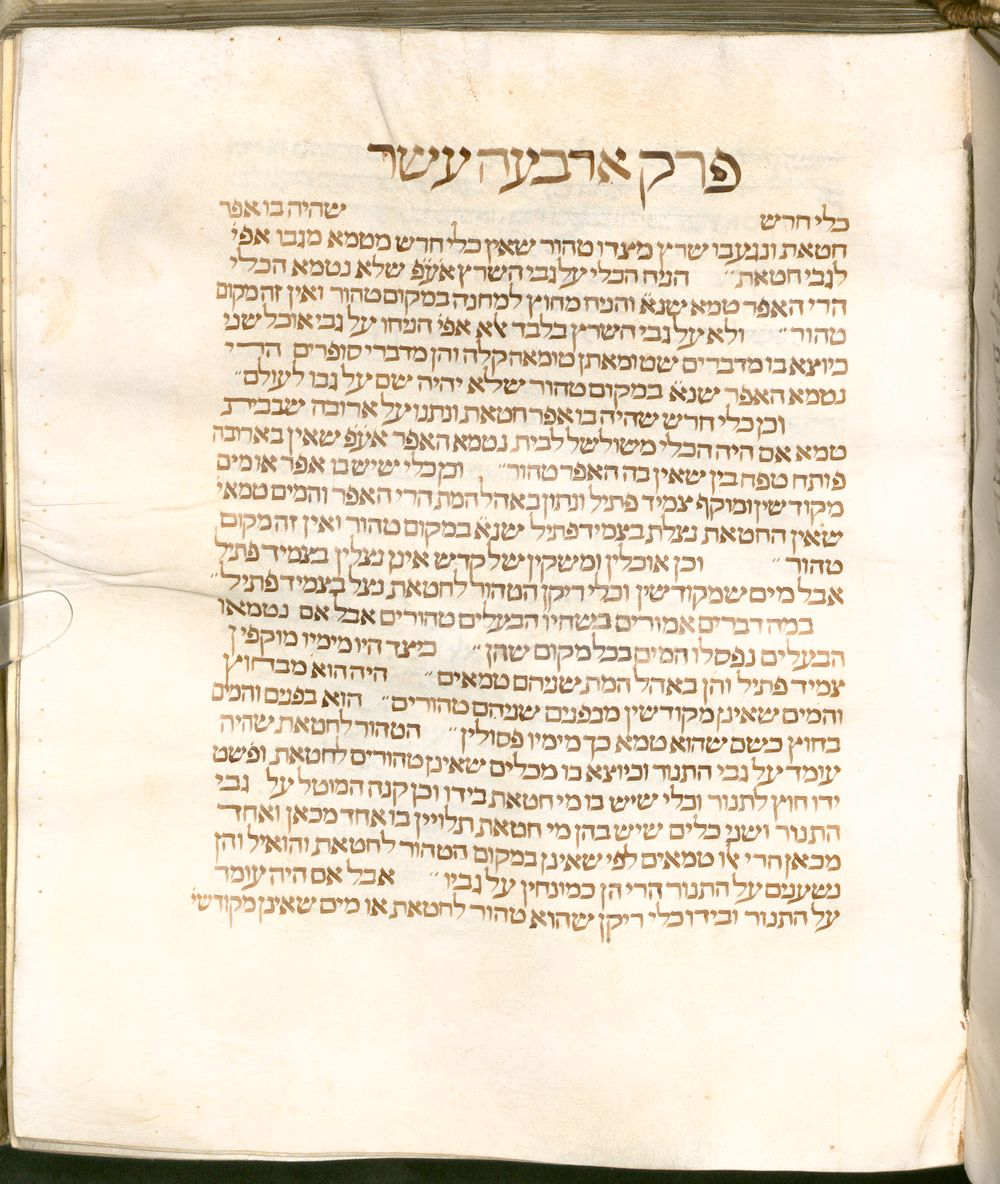 פרק ארבעה עשר
כלי חרש שהיה בו אפר
חטאת ונגע בו שרץ מצדו טהור שאין כלי חרש מטמא מגבו אפי׳
לגבי חטאת״ הניח הכלי על גבי השרץ אע״פ שלא נטמא הכלי
הרי האפר טמא שנא׳ והניח מחוץ למחנה במקום טהור ואין זה מקום
טהור״ ולא על גבי השרץ בלבד אלא אפי׳ הניחו על גבי אוכל שני
כיוצא בו מדברים שטומאתן טומאה קלה והן מדברי סופרים הרי
נטמא האפר שנא׳ במקום טהור שלא יהיה שם על גבו לעולם״
וכן כלי חרש שהיה בו אפר חטאת ונתנו על ארובה שבבית
טמא אם היה הכלי משולשל לבית נטמא האפר אע״פ שאין בארובה
פותח טפח בין שאין בה האפר טהור״ וכן כלי שיש בו אפר או מים
מקודשין ומוקף צמיד פתיל ונתון באהל המת הרי האפר והמים טמאי׳
שאין החטאת נצלת בצמיד פתיל שנא׳ במקום טהור ואין זה מקום
טהור״ וכן אוכלין ומשקין של קדש אינן נצלין בצמיד פתיל
אבל מים שמקודשין וכלי ריקן הטהור לחטאת נצל בצמיד פתיל״
במה דברים אמורים בשהיו הבעלים טהורים אבל אם נטמאו
הבעלים נפסלו המים בכל מקום שהן״ כיצד היו מימיו מוקפין
צמיד פתיל והן באהל המת שניהם טמאים״ היה הוא מבחוץ
והמים שאינן מקודשין מבפנים שניהם טהורים״ הוא בפנים והמים
בחוץ כשם שהוא טמא כך מימיו פסולין״ הטהור לחטאת שהיה
עומד על גבי התנור וכיוצא בו מכלים שאינן טהורים לחטאת ופשט
ידו חוץ לתנור וכלי שיש בו מי חטאת בידו וכן קנה המוטל על גבי
התנור ושני כלים שיש בהן מי חטאת תלויין בו אחד מכאן ואחד
מכאן הרי אלו טמאים לפי שאינן במקום הטהור לחטאת והואיל והן
נשענים על התנור הרי הן כמונחין על גביו״ אבל אם היה עומד
על התנור ובידו כלי ריקן שהוא טהור לחטאת או מים שאינן מקודשי׳